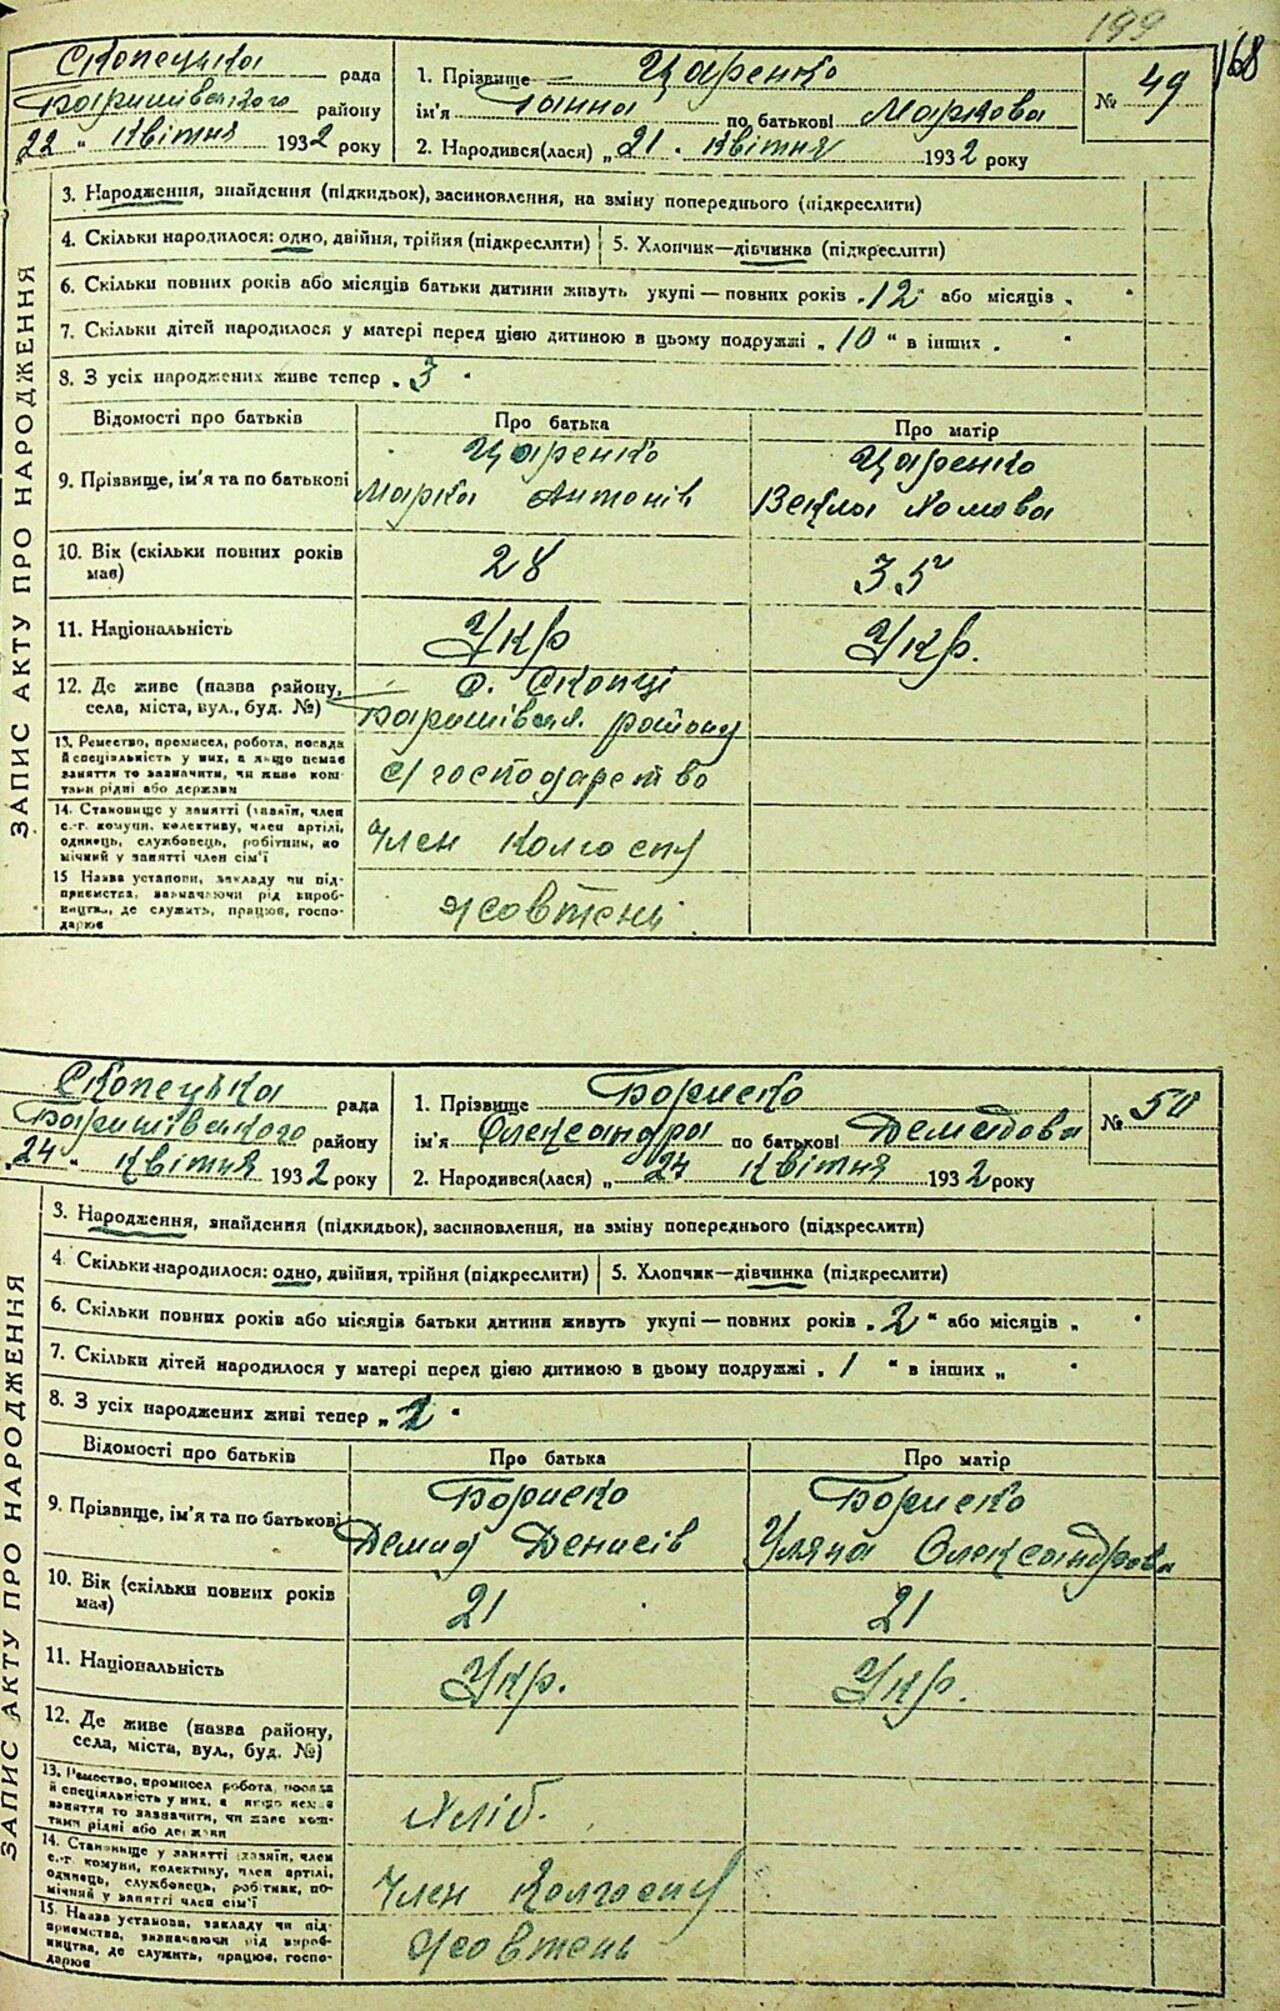 199
168
Скопецька рада
Баришівського району
22 " квітня 1932 року
1. Прізвище Царенко
ім'я Ганна по батькові Маркова
2. Народився(лася) „ 21 . квітня 1932 року
№ 49
ЗАПИС АКТУ ПРО НАРОДЖЕННЯ
3. Народження, знайдення (підкидьок), засиновлення, на зміну попереднього (підкреслити)
4. Скільки народилося: одно, двійня, трійня (підкреслити) 5. Хлопчик—дівчинка (підкреслити)
6. Скільки повних років або місяців батьки дитини живуть укупі — повних років „ 12 " або місяців „ "
7. Скільки дітей народилося у матері перед цією дитиною в цьому подружжі „ 10 " в інших „ "
8. З усіх народжених живе тепер „ 3 "
Відомості про батьків Про батька Про матір
9. Прізвище, ім'я та по батькові
Царенко
Марко Антонів
Царенко
Векла Хомова
10. Вік (скільки повних років
має)
28 35
11. Національність Укр Укр.
12. Де живе (назва району,
села, міста, вул., буд. №)
с. Скопці
Баришівськ. району
13. Ремество, промисел, робота, посада
й спеціяльність у них, а якщо немає
заняття то зазначити, чи живе кош-
тами рідні або держави
с/господарство
14. Становище у занятті (хазяїн, член
с.-г. комуни, колективу, член артілі,
одинець, службовець, робітник, по
мічний у занятті член сім'ї
Член колгоспу
15 Назва установи, закладу чи під-
приємства, зазначаючи рід вироб-
ництва, де служить, працює, госпо-
дарює
Жовтень
Скопецька рада
Баришівського району
„24 " квітня 1932 року
1. Прізвище Бориско
ім'я Олександра по батькові Демидова
2. Народився(лася) „ 24 квітня 1932 року
№ 50
ЗАПИС АКТУ ПРО НАРОДЖЕННЯ
3. Народження, знайдення (підкидьок), засиновлення, на зміну попереднього (підкреслити)
4. Скільки народилося: одно, двійня, трійня (підкреслити) 5. Хлопчик—дівчинка (підкреслити)
6. Скільки повних років або місяців батьки дитини живуть укупі — повних років „ 2 " або місяців „ "
7. Скільки дітей народилося у матері перед цією дитиною в цьому подружжі „ 1 " в інших „ "
8. З усіх народжених живі тепер „ 2 "
Відомості про батьків Про батька Про матір
9. Прізвище, ім'я та по батькові
Бориско
Демид Денисів
Бориско
Уляна Олександрова
10. Вік (скільки повних років
має)
21 21
11. Національність Укр. Укр.
12. Де живе (назва району,
села, міста, вул., буд. №)
13. Ремество, промисел робота, посада
й спеціяльність у них, а якщо немає
заняття то зазначити, чи живе кош-
тами рідні або держави
Хліб.
14. Становище у занятті (хазяїн, член
с.-г. комуни, колективу, член артілі,
одинець, службовець, робітник, по-
мічний у занятті член сім'ї
Член колгоспу
15. Назва установи, закладу чи під-
приємства, зазначаючи рід вироб-
ництва, де служить, працює, госпо-
дарює
Жовтень